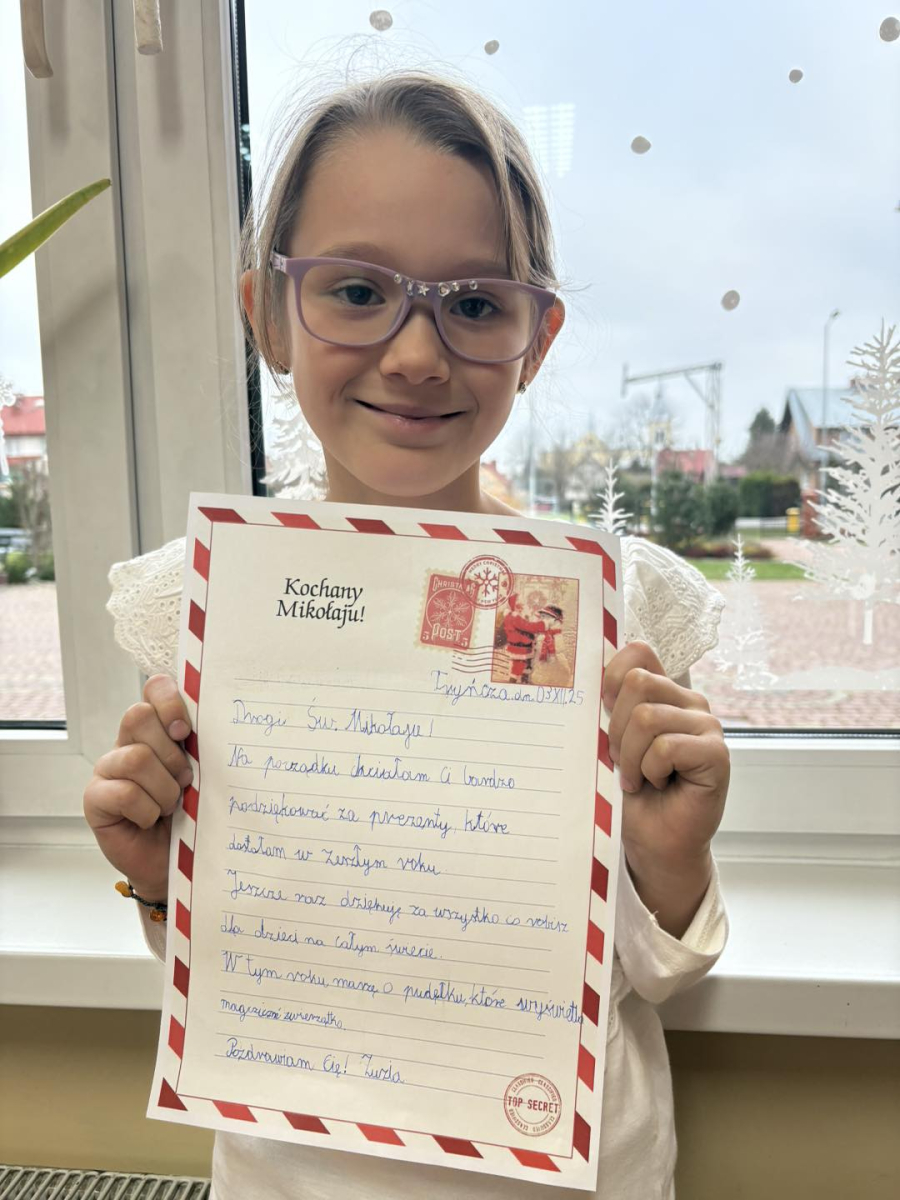 Kochany
Mikołaju!
CHRISTMAS
POST
5 5
Tryńcza, dn. 03.XII.25
Drogi Św. Mikołaju!
Na początku chciałam Ci bardzo
podziękować za prezenty, które
dostałam w zeszłym roku
Jeszcze raz dziękuję za wszystko co robisz
dla dzieci na całym świecie.
W tym roku marzę o pudełku, które wyświetla
magiczne zwierzątka
Pozdrawiam Cię! Zuzia
CLASSIFIED
TOP SECRET
CLASSIFIED